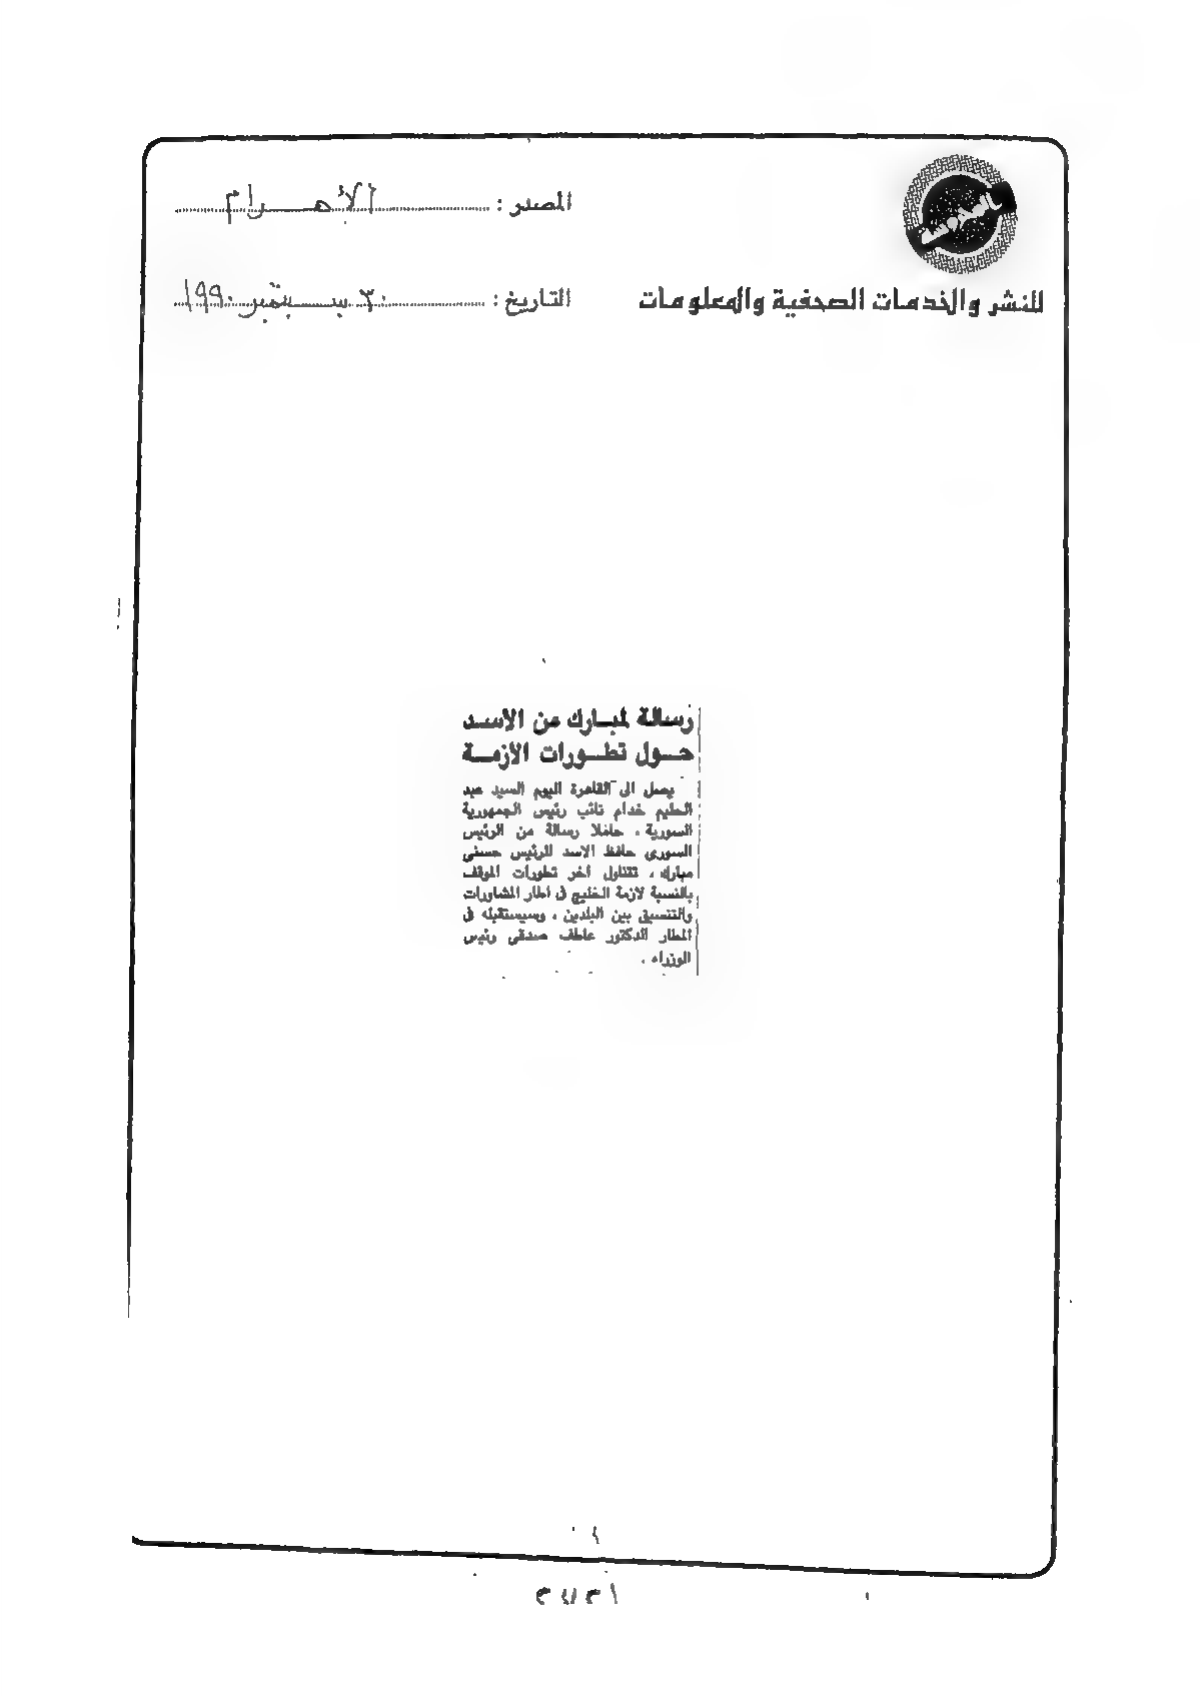 المصدر : الأهرام
للنشر والخدمات الصحفية والمعلومات
التاريخ : ٣٠ سبتمبر ١٩٩٠
رسالة لمبارك من الاسد
حول تطورات الازمة
يصل الى القاهرة اليوم السيد عبد
الحليم خدام نائب رئيس الجمهورية
السورية ، حاملا رسالة من الرئيس
السورى حافظ الاسد للرئيس حسنى
مبارك ، تتناول اخر تطورات الموقف
بالنسبة لازمة الخليج فى اطار المشاورات
والتنسيق بين البلدين ، وسيستقبله فى
المطار الدكتور عاطف صدقى رئيس
الوزراء .